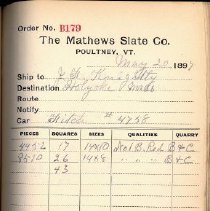 Order No. B179
The Mathews Slate Co.
POULTNEY, VT.
May 20 1897
Ship to
Destination Holyoke
Route
Notify
Car 4758
PIECES SQUARES SIZES QUALITIES QUARRY
4456 17 14x10 No 1 B. B & C
9510 26 14x8 " " B & C
43